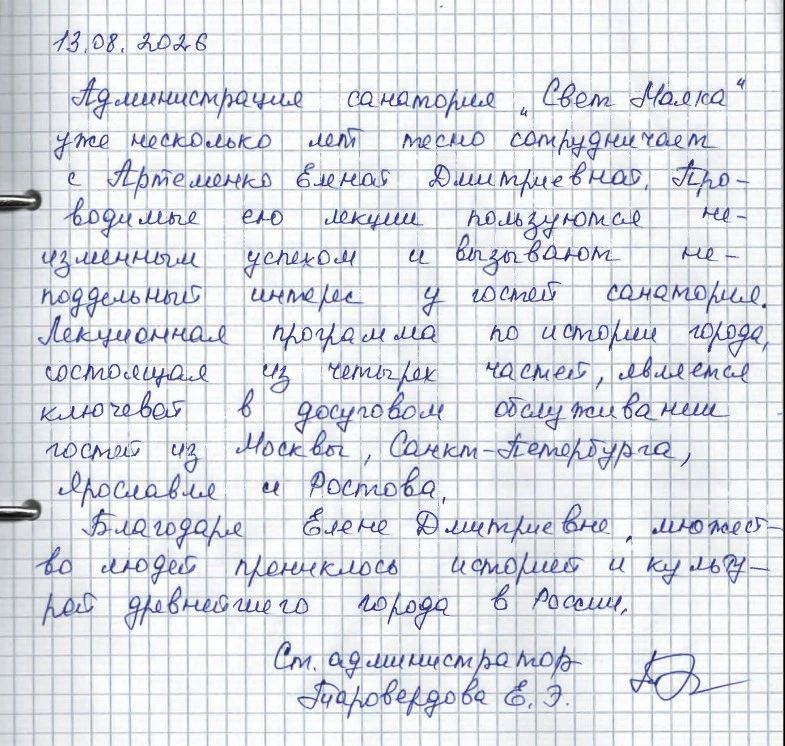 13.08.2026
Администрация санатория „Свет Маяка"
уже несколько лет тесно сотрудничает
с Артеменко Еленой Дмитриевной. Про-
водимые ею лекции пользуются не-
изменным успехом и вызывают не-
поддельный интерес у гостей санатория.
Лекционная программа по истории города,
состоящая из четырех частей, является
ключевой в досуговом обслуживании
гостей из Москвы, Санкт-Петербурга,
Ярославля и Ростова.
Благодаря Елене Дмитриевне, множест-
во людей прониклось историей и культу-
рой древнейшего города в России.
Ст. администратор
Е. Э.